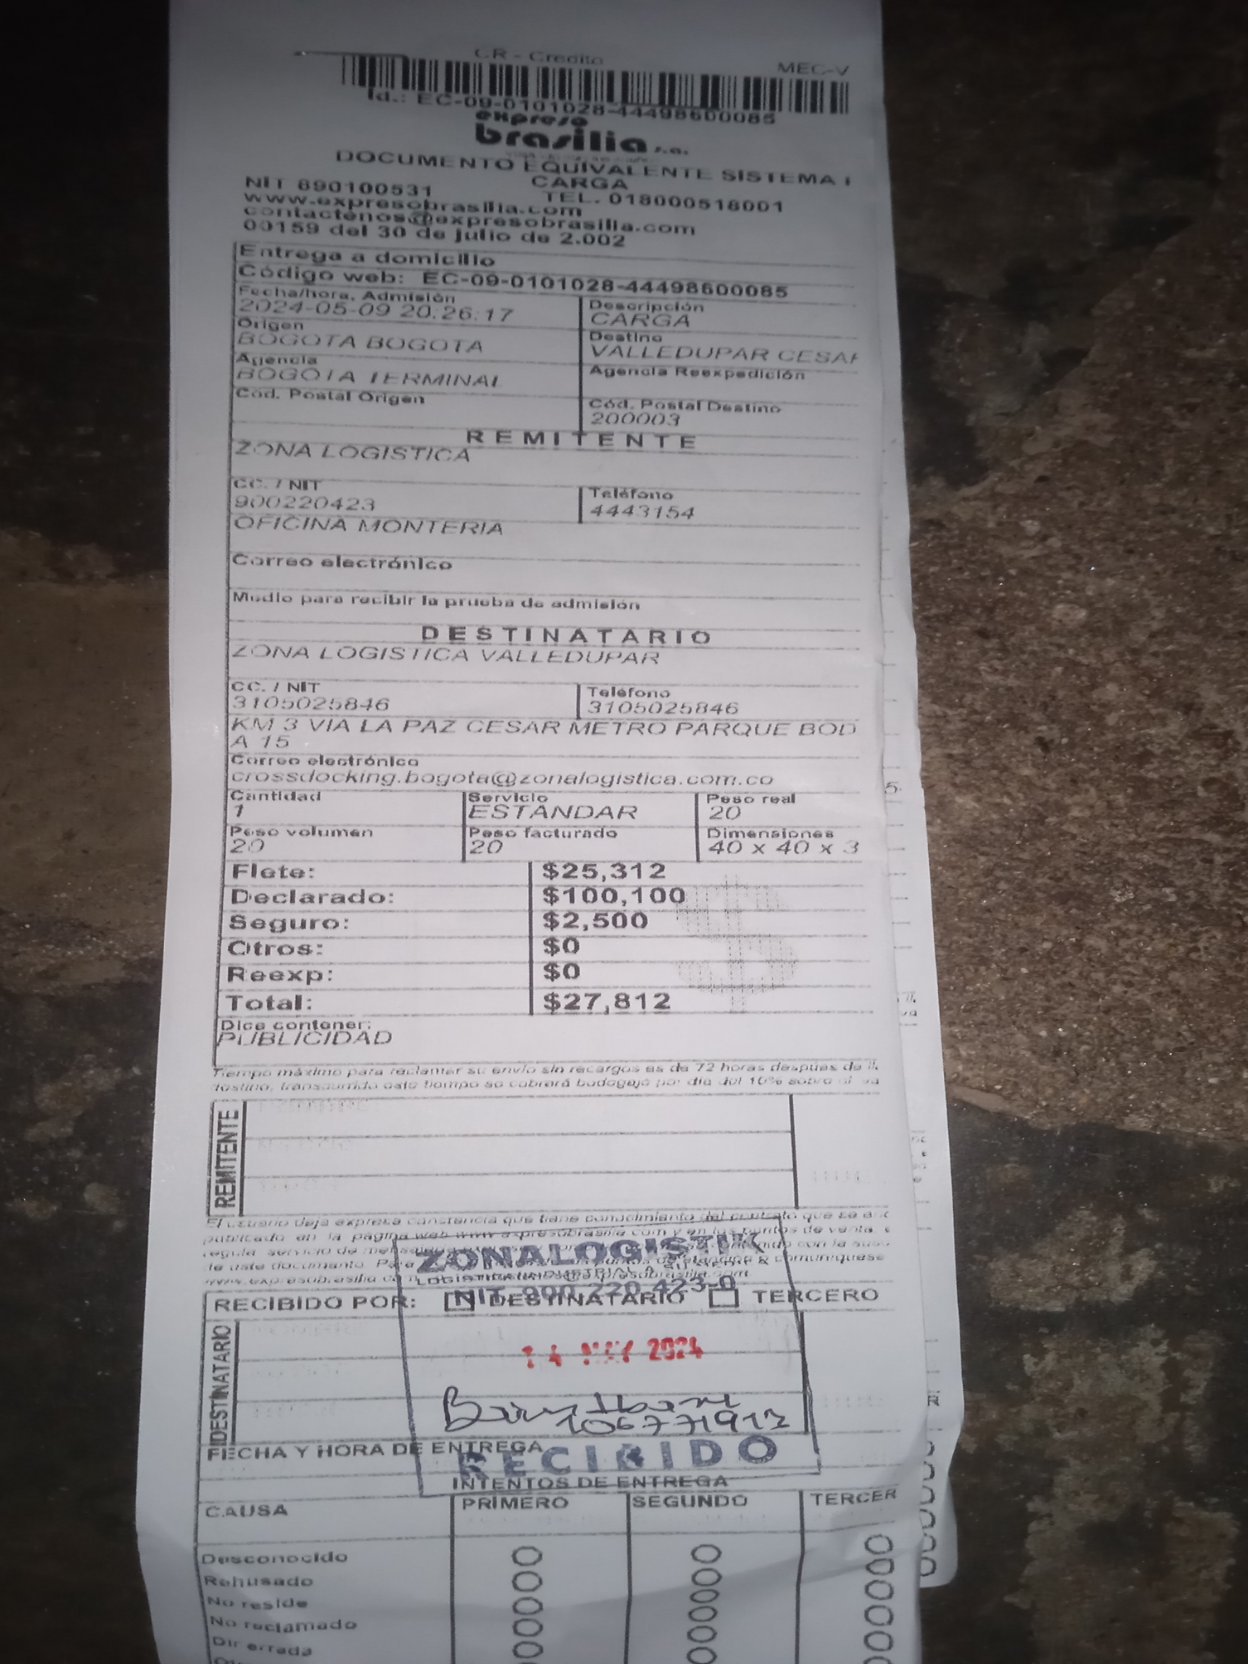 CR - Credito MEC-V
Id.: EC-09-0101028-44498600085
expreso
brasilia s.a.
DOCUMENTO EQUIVALENTE SISTEMA
CARGA
NIT 890100531 TEL. 018000518001
www.expresobrasilia.com
contactenos@expresobrasilia.com
00159 del 30 de julio de 2.002
Entrega a domicilio
Código web: EC-09-0101028-44498600085
Fecha/hora. Admisión Descripción
2024-05-09 20:26:17 CARGA
Origen Destino
BOGOTA BOGOTA VALLEDUPAR CESAR
Agencia Agencia Reexpedición
BOGOTA TERMINAL
Cód. Postal Origen Cód. Postal Destino
200003
REMITENTE
ZONA LOGISTICA
CC. / NIT Teléfono
900220423 4443154
OFICINA MONTERIA
Correo electrónico
Medio para recibir la prueba de admisión
DESTINATARIO
ZONA LOGISTICA VALLEDUPAR
CC. / NIT Teléfono
3105025846 3105025846
KM 3 VIA LA PAZ CESAR METRO PARQUE BOD
A 15
Correo electrónico
crossdocking.bogota@zonalogistica.com.co
Cantidad Servicio Peso real
1 ESTÁNDAR 20
Peso volumen Peso facturado Dimensiones
20 20 40 x 40 x 3
Flete: $25,312
Declarado: $100,100
Seguro: $2,500
Otros: $0
Reexp: $0
Total: $27,812
Dice contener:
PUBLICIDAD
Tiempo máximo para reclamar su envío sin recargos es de 72 horas después de
destino, transcurrido este tiempo se cobrará bodegaje por día del 10% sobre el
REMITENTE
El usuario deja expresa constancia que tiene conocimiento del contrato que se
publicado en la página web www.expresobrasilia.com y en los puntos de venta,
regula servicio de
de este documento. Para comuníquese
ZONALOGISTIK
NIT. 900.220.423-0
RECIBIDO POR: DESTINATARIO TERCERO
DESTINATARIO
14 MAY 2024
FECHA Y HORA DE ENTREGA
RECIBIDO
INTENTOS DE ENTREGA
CAUSA PRIMERO SEGUNDO TERCER
Desconocido
Rehusado
No reside
No reclamado
Dir errada